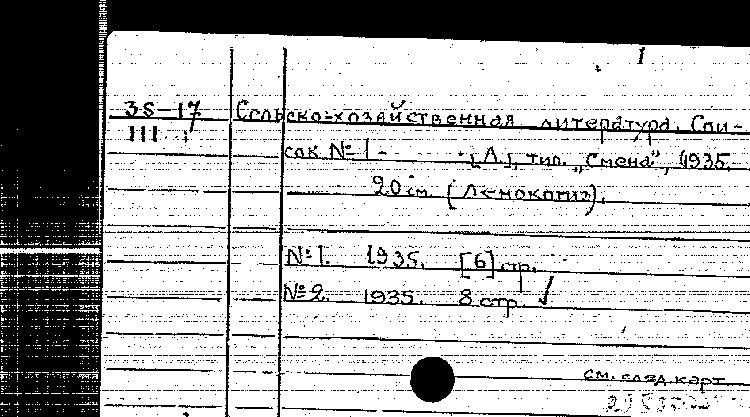 1
38-17 Сельско-хозяйственная литература. Спи-
III сок №1 - [Л.], тип. „Смена", 1935.
20 см. (Ленокогиз).
№1. 1935. [6] стр.
№2. 1935. 8 стр. √
см. след. карт.